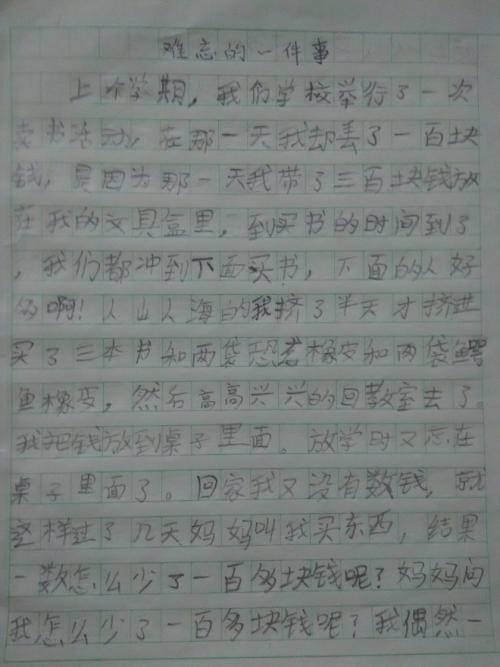 难忘的一件事
上个学期，我们学校举行了一次
卖书活动，在那一天我却丢了一百块
钱，是因为那一天我带了三百块钱放
在我的文具盒里，到买书的时间到了
，我们都冲到下面买书，下面的人好
多啊！人山人海的我挤了半天才挤进
买了三本书和两袋恐龙橡皮和两袋鳄
鱼橡皮，然后高高兴兴的回教室去了。
我把钱放到桌子里面。放学时又忘在
桌子里面了。回家我又没有数钱，就
这样过了几天妈妈叫我买东西，结果
一数怎么少了一百多块钱呢？妈妈问
我怎么少了一百多块钱呢？我偶然一